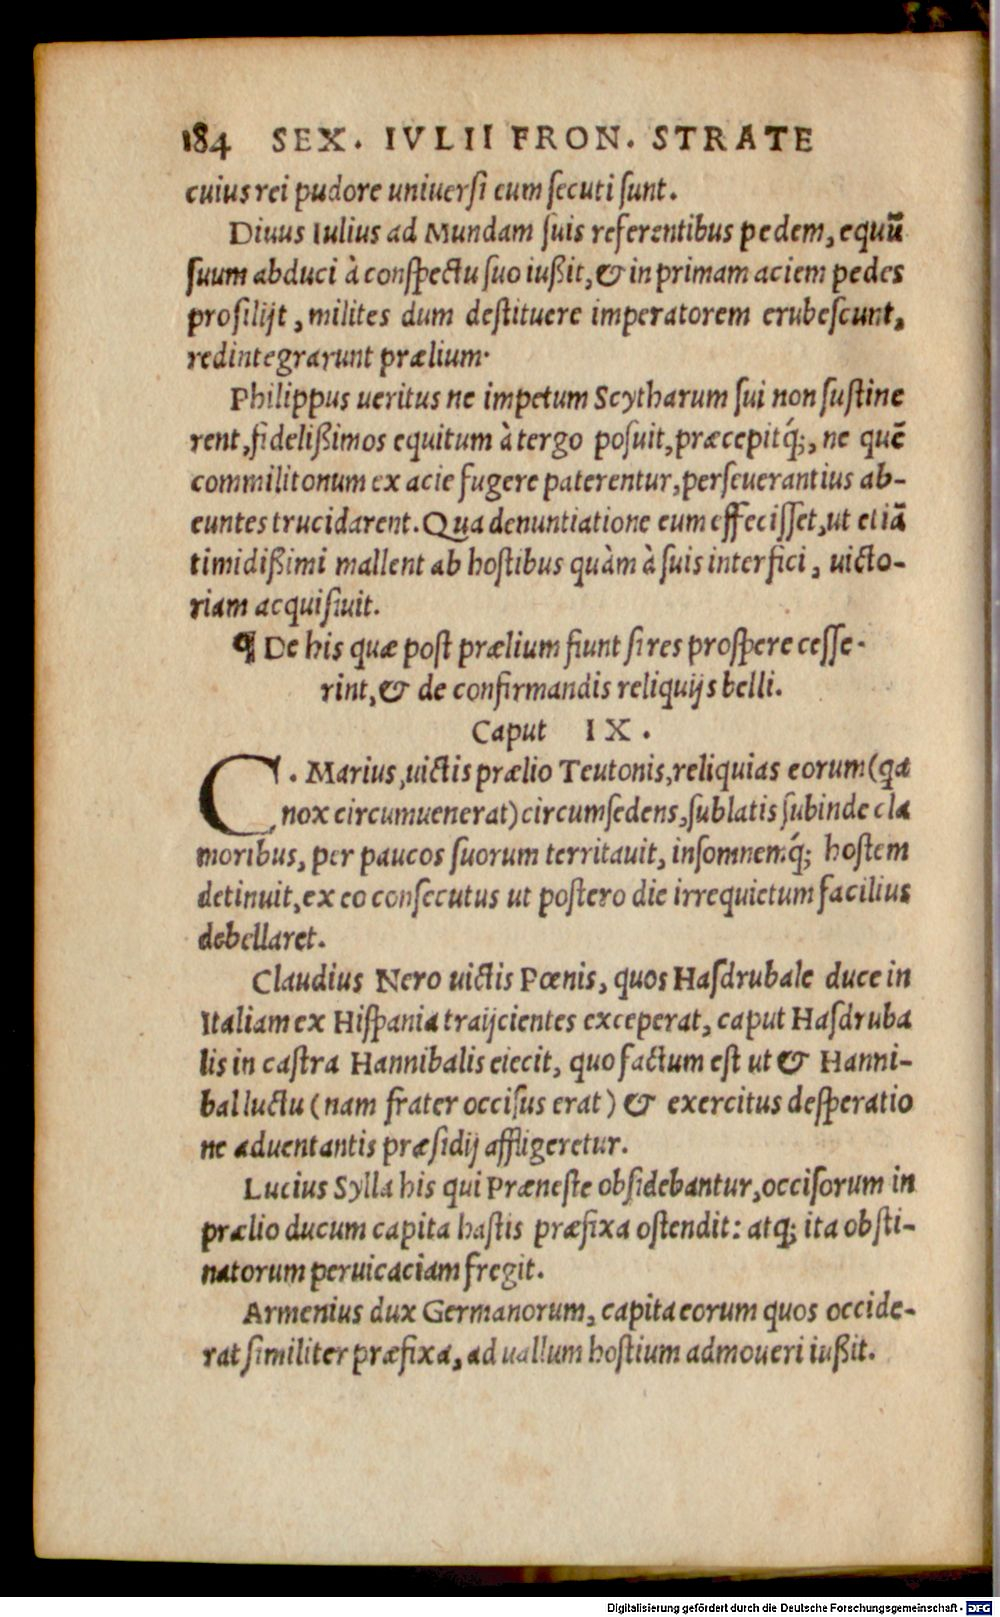 184 SEX. IVLII FRON. STRATE
cuius rei pudore uniuersi eum secuti sunt.
Diuus Iulius ad Mundam suis referentibus pedem, equū
suum abduci à conspectu suo iußit, & in primam aciem pedes
prosilijt, milites dum destituere imperatorem erubescunt,
redintegrarunt prælium.
Philippus ueritus ne impetum Scytharum sui non sustine
rent, fidelißimos equitum à tergo posuit, præcepitq́;, ne quē
commilitonum ex acie fugere paterentur, perseuerantius ab-
euntes trucidarent. Qua denuntiatione cum effecisset, ut etiā
timidißimi mallent ab hostibus quàm à suis interfici, uicto-
riam acquisiuit.
¶ De his quæ post prælium fiunt si res prospere cesse-
rint, & de confirmandis reliquijs belli.
Caput IX.
C. Marius, uictis prælio Teutonis, reliquias eorum (qa
nox circumuenerat) circumsedens, sublatis subinde cla
moribus, per paucos suorum territauit, insomnemq́; hostem
detinuit, ex eo consecutus ut postero die irrequietum facilius
debellaret.
Claudius Nero uictis Pœnis, quos Hasdrubale duce in
Italiam ex Hispania traijcientes exceperat, caput Hasdruba
lis in castra Hannibalis eiecit, quo factum est ut & Hanni-
bal luctu (nam frater occisus erat) & exercitus desperatio
ne aduentantis præsidij affligeretur.
Lucius Sylla his qui Præneste obsidebantur, occisorum in
prælio ducum capita hastis præfixa ostendit: atq; ita obsti-
natorum peruicaciam fregit.
Armenius dux Germanorum, capita eorum quos occide-
rat similiter præfixa, ad uallum hostium admoueri iußit.
Digitalisierung gefördert durch die Deutsche Forschungsgemeinschaft - DFG